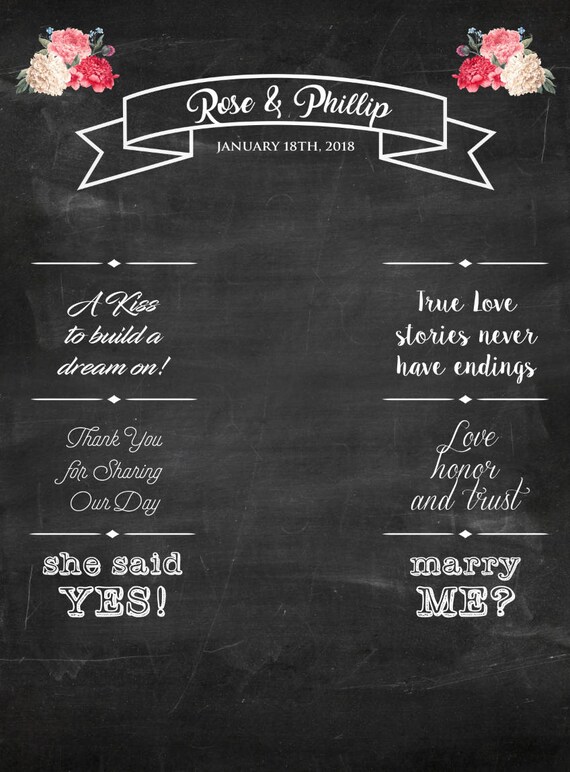 Rose & Phillip
JANUARY 18TH, 2018
A Kiss
to build a
dream on!
True Love
stories never
have endings
Thank You
for Sharing
Our Day
Love
honor
and trust
she said
YES!
marry
ME?